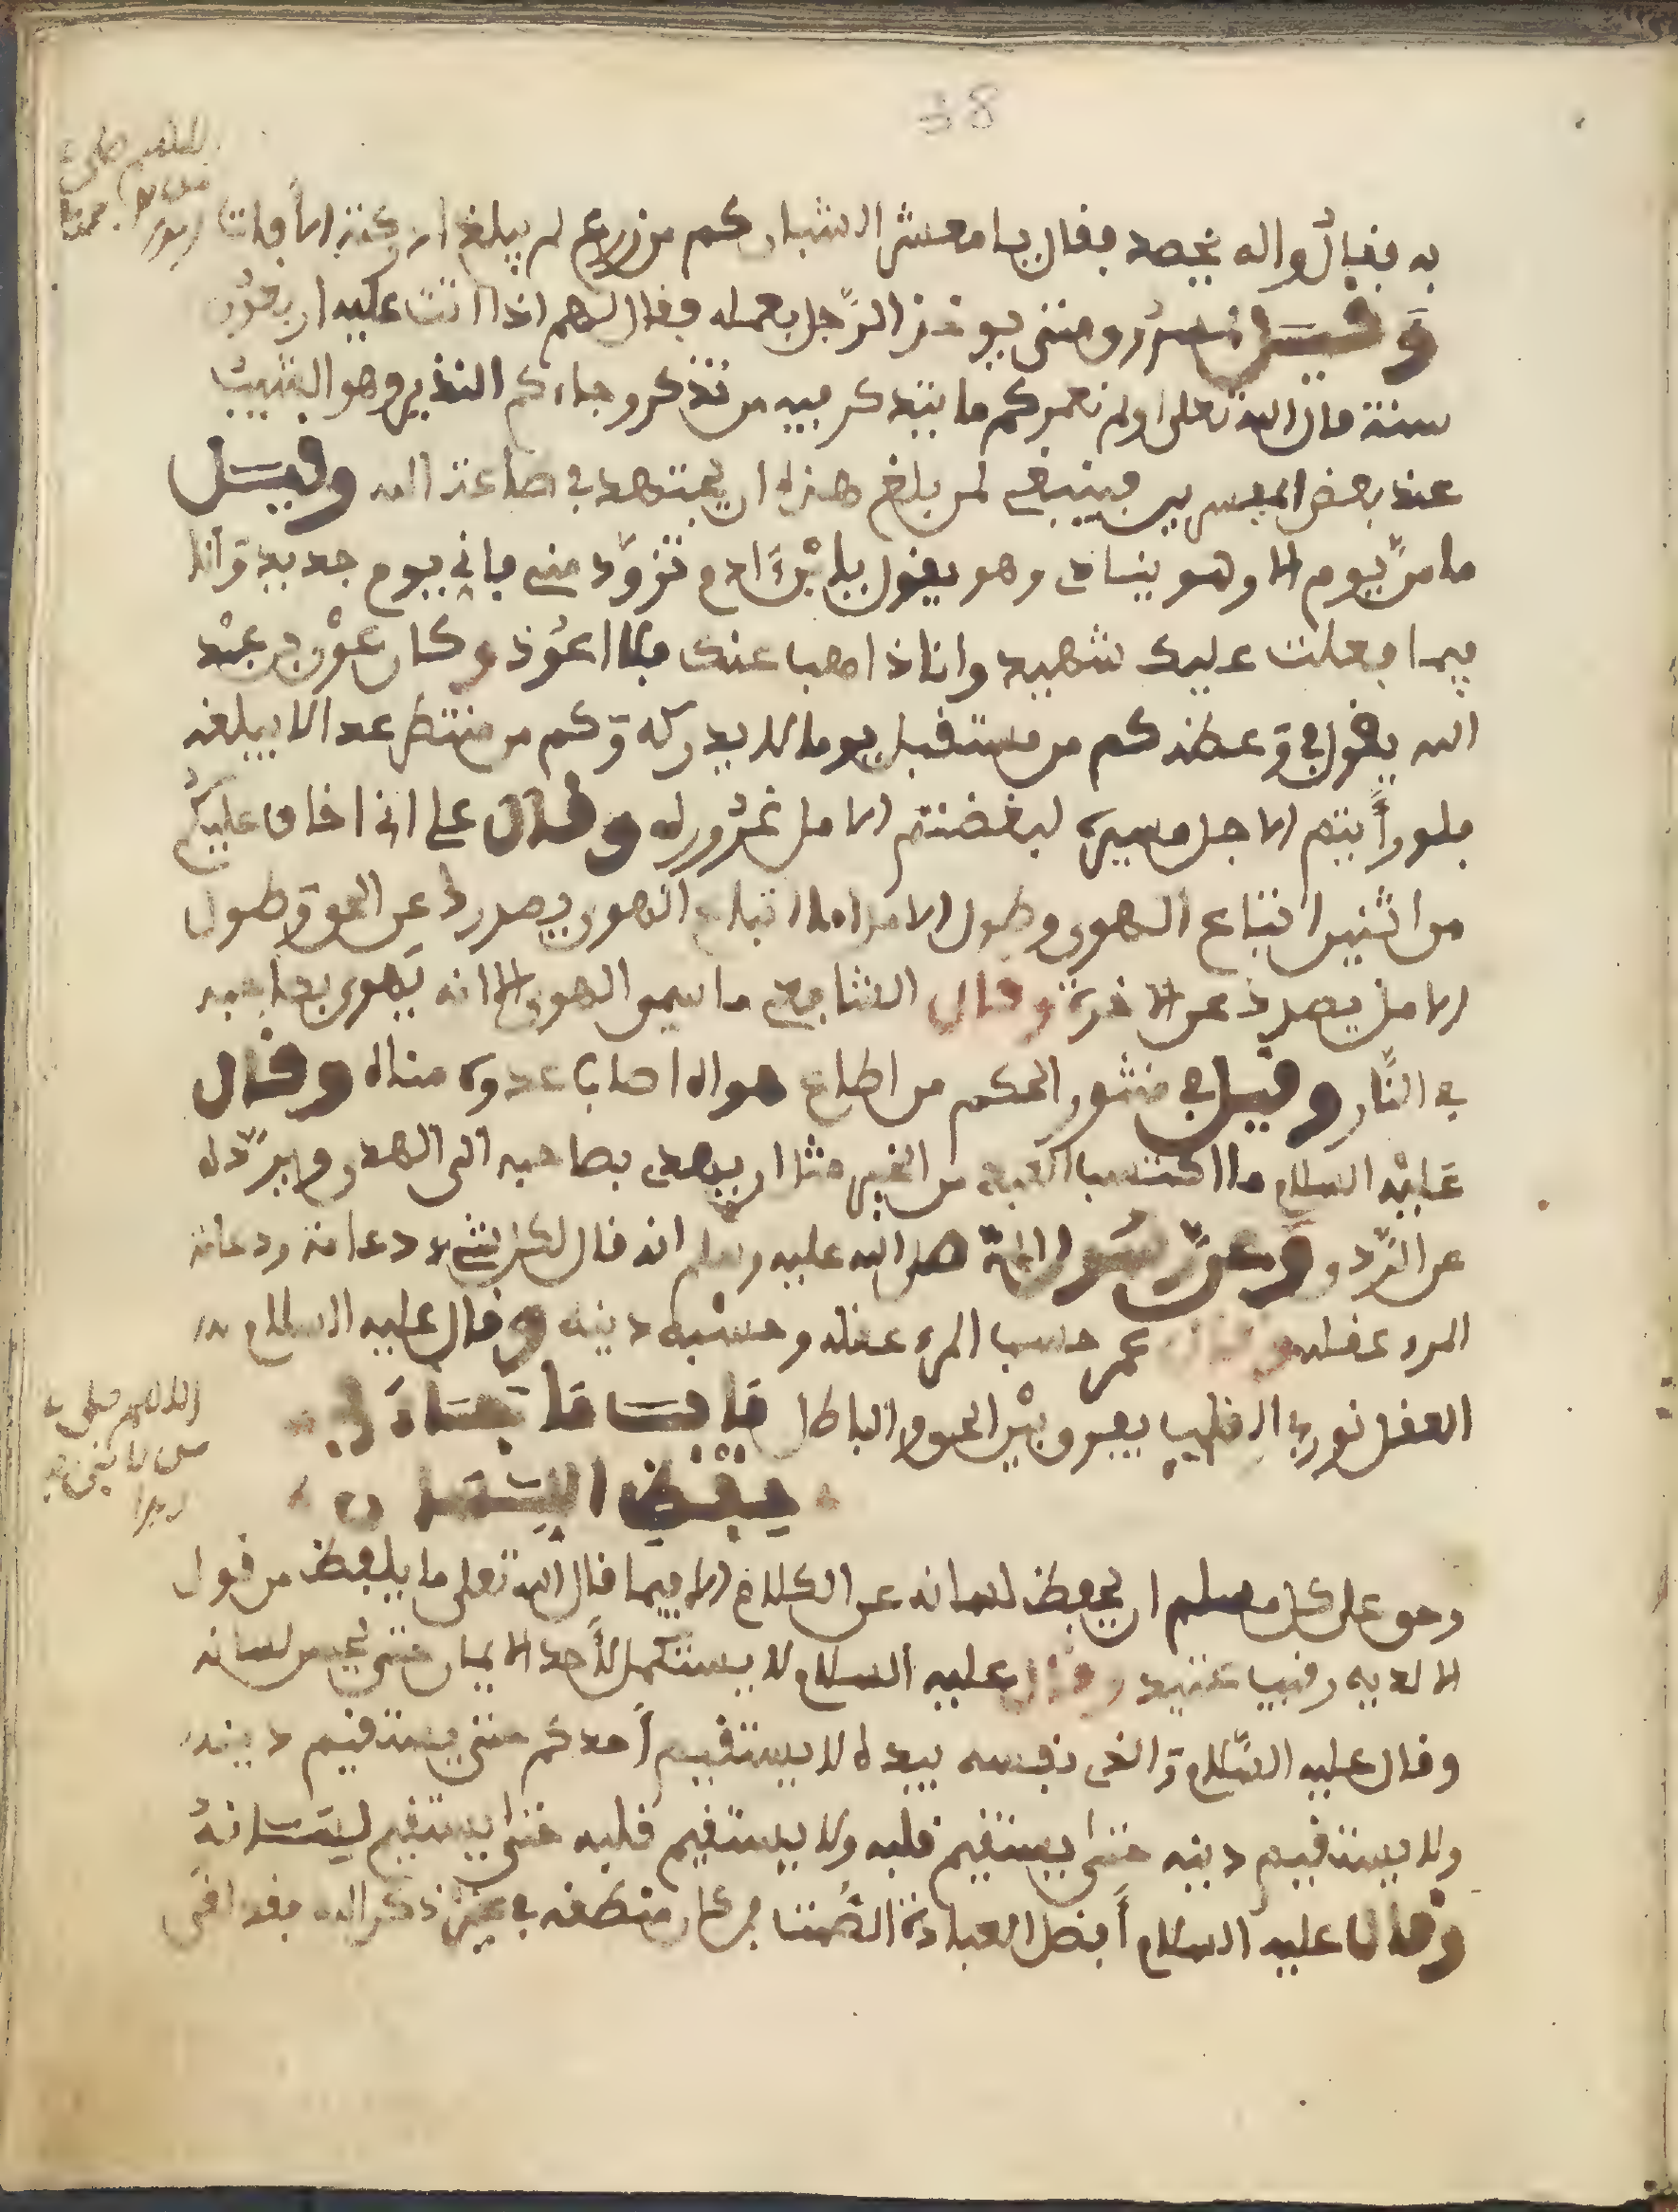 به فقالوا له يحصد فقال يا معشر الشباب كم من زرع لم يبلغ ادركته الآفات
وقيل لمسروق متى يوخذ الرجل بعمله فقال لهم اذا اتت عليه اربعون
سنة قال الله تعلى اولم نعمركم ما يتذكر فيه من تذكر وجاءكم النذير وهو الشيب
عند بعض المفسرين فينبغي لمن بلغ هذا ان يجتهد في طاعة الله وقيل
ما من يوم الا وهو ينادى وهو يقول يا ابن ءادم تزود منى فاني يوم جديد وانا
فيما فعلت عليك شهيد وانا ذاهب عنك فلا اعوذ وكان عون بن عبد
الله يقول في وعظه كم من مستقبل يوما لا يدركه وكم من منتظر غدا لا يبلغه
فلو رأيتم الاجل ومسيره لبغضتم الامل وغروره وقال على انى اخاف عليكم
من اثنين اتباع الهوى وطول الامل اما اتباع الهوى فيصدك عن الحق وطول
الامل يصدك عن الاخرة وقال الشافعى ما سمى الهوى الا انه يهوى بصاحبه
في النار وقيل في منثور الحكم من اطاع هواه اصاب عدوه مناه وقال
عليه السلام ما اكتسب العبد من الخير مثل ان يهدى بصاحبه الى الهدى ويرده
عن الردى وعن رسول الله صلى الله عليه وسلم انه قال لكل شىء دعامة ودعامة
المرء عقله وقال عمر حسب المرء عقله وحسبه دينه وقال عليه السلام
العقل نور في القلب يفرق بين الحق والباطل باب ما جاء في
حفظ اللسان
وحق على كل مسلم ان يحفظ لسانه عن الكلام الا فيما قال الله تعلى ما يلفظ من قول
الا لديه رقيب عتيد وقال عليه السلام لا يستكمل احد الايمان حتى يحبس لسانه
وقال عليه السلام والذى نفسه بيده لا يستقيم احدكم حتى يستقيم دينه
ولا يستقيم دينه حتى يستقيم قلبه ولا يستقيم قلبه حتى يستقيم لسانه
وقال عليه السلام أفضل العبادة الصمت فمن كان منطقه في غير ذكر الله فقد